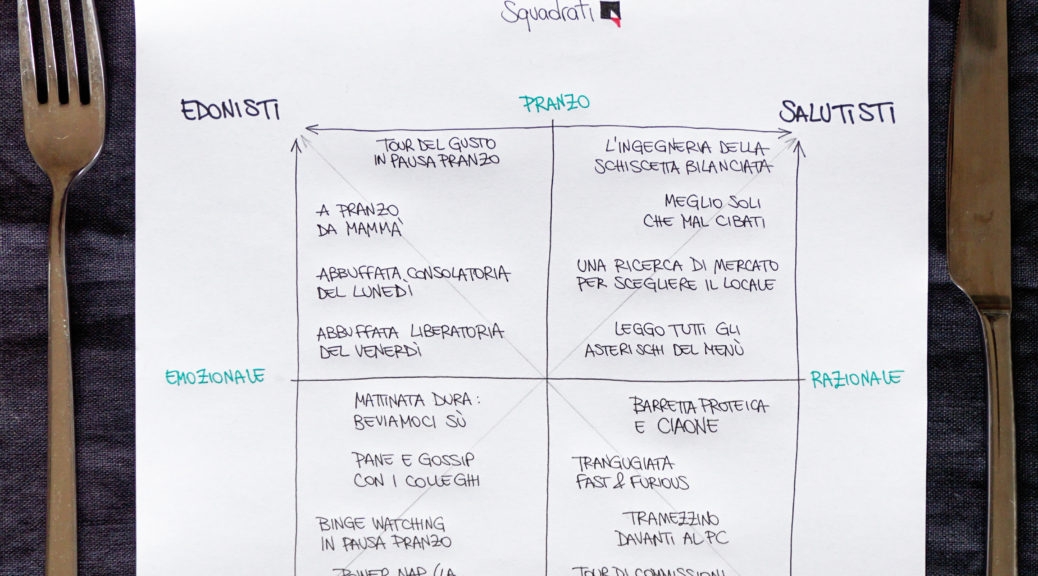 Squadrati
EDONISTI
PRANZO
SALUTISTI
TOUR DEL GUSTO
IN PAUSA PRANZO
A PRANZO
DA MAMMÀ
ABBUFFATA CONSOLATORIA
DEL LUNEDÌ
ABBUFFATA LIBERATORIA
DEL VENERDÌ
L'INGEGNERIA DELLA
SCHISCETTA BILANCIATA
MEGLIO SOLI
CHE MAL CIBATI
UNA RICERCA DI MERCATO
PER SCEGLIERE IL LOCALE
LEGGO TUTTI GLI
ASTERISCHI DEL MENÙ
EMOZIONALE
RAZIONALE
MATTINATA DURA:
BEVIAMOCI SÙ
PANE E GOSSIP
CON I COLLEGHI
BINGE WATCHING
IN PAUSA PRANZO
NAP (LA
BARRETTA PROTEICA
E CIAONE
TRANGUGIATA
FAST & FURIOUS
TRAMEZZINO
DAVANTI AL PC
TOUR DI COMMISSIONI